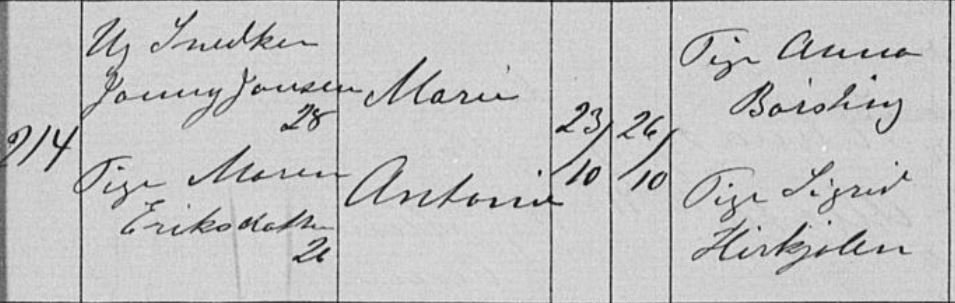 214
Ug Snedker
Jonny Jonsen
28
Pige Maren
Eriksdatter
26
Marie
Antonie
23/10
26/10
Pige Anna
Pige Sigrid